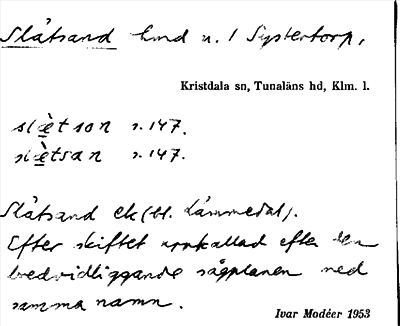 Slåtsand hmd u. 1 Systertorp,
Kristdala sn, Tunaläns hd, Klm. l.
slæ̀tson s. 147.
slæ̀tsan s. 147.
Slåtsand ek (tl. Lämmedal).
Efter skiftet omkallad efter den
bredvidliggande sågplanen med
samma namn.
Ivar Modéer 1953